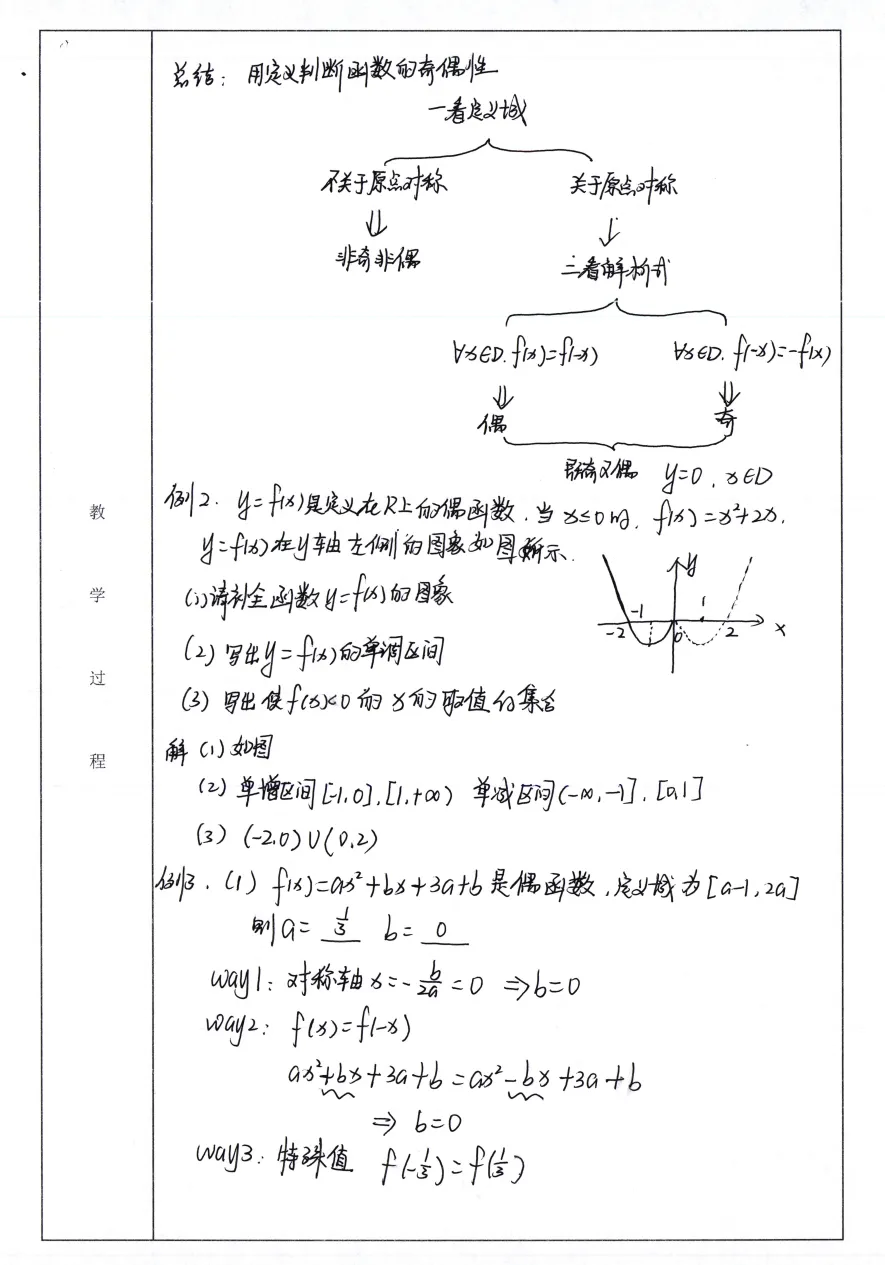 总结：用定义判断函数的奇偶性
一看定义域
不关于原点对称 关于原点对称
⇓ ↓
非奇非偶 二看解析式
∀x∈D. f(x)=f(-x) ∀x∈D. f(-x)=-f(x)
⇓ ⇓
偶 奇
既奇又偶 y=0, x∈D
例2. y=f(x)是定义在R上的偶函数,当x≤0时, f(x)=x²+2x,
y=f(x)在y轴左侧的图象如图所示.
(1)请补全函数y=f(x)的图象
(2)写出y=f(x)的单调区间
(3)写出使f(x)<0的x的取值的集合
y
-2 -1 0 1 2 x
解(1)如图
(2)单增区间[-1,0],[1,+∞) 单减区间(-∞,-1],[0,1]
(3)(-2,0)∪(0,2)
例3.(1) f(x)=ax²+bx+3a+b是偶函数,定义域为[a-1,2a]
则a= 1/3 b= 0
way1: 对称轴x=-b/2a=0 ⇒b=0
way2: f(x)=f(-x)
ax²+bx+3a+b=ax²-bx+3a+b
⇒ b=0
way3: 特殊值 f(-1/3)=f(1/3)
教
学
过
程